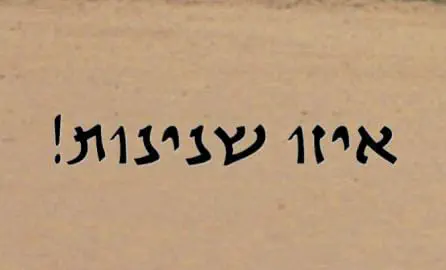 איזו שנינות!